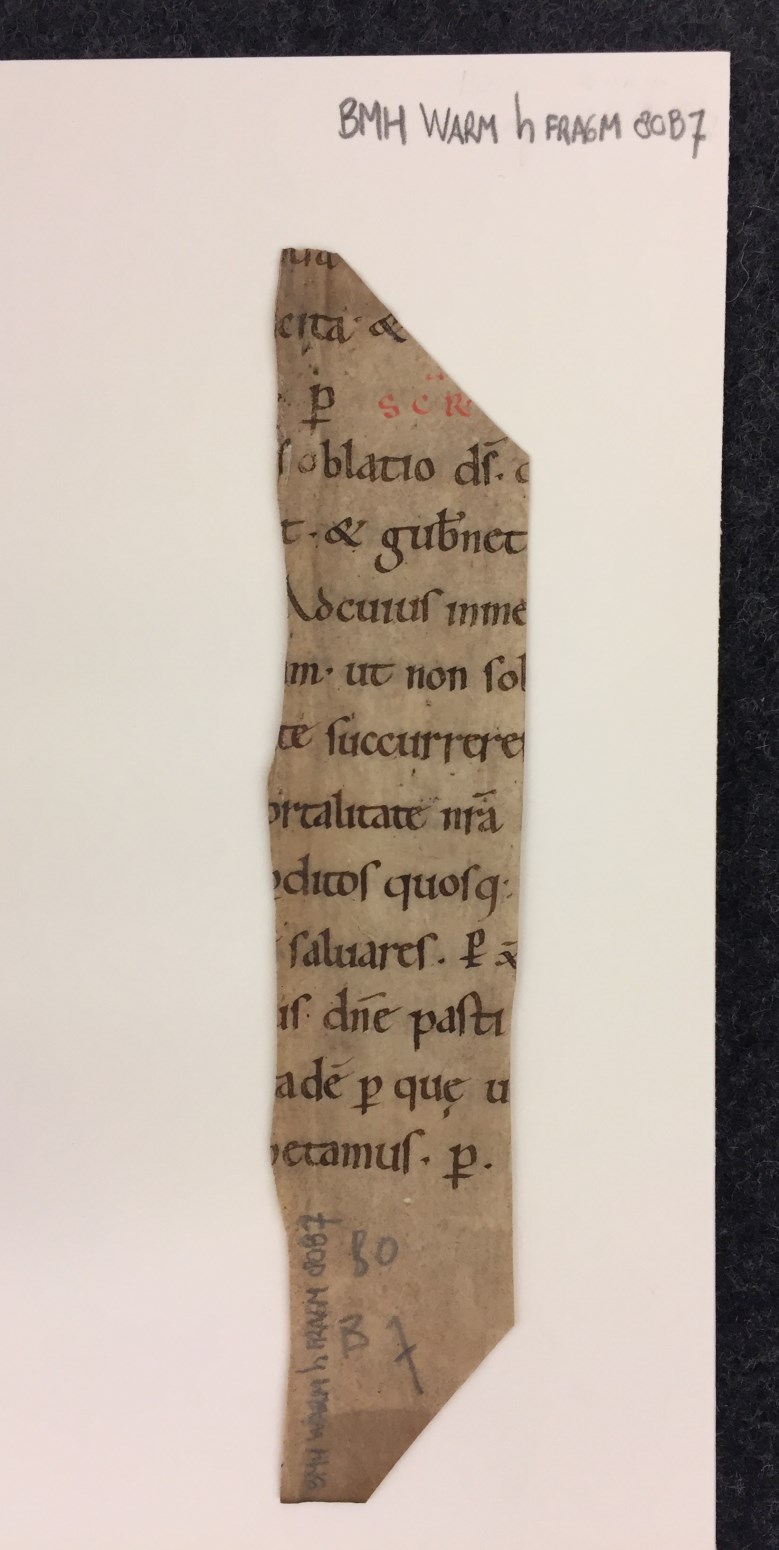 BMH WARM h FRAGM 80B7
cita· &
p̄ SCR
oblatio ds̄. c
t· & gub̄net
Adcuius inme
im· ut non sol
te succurrere
ortalitate nr̄a
ditos quosq·
saluares. P x̄
is· dn̄e pasti
adē p quę u
petamus· p.
80
B7
BMH WARM h FRAGM 80B7